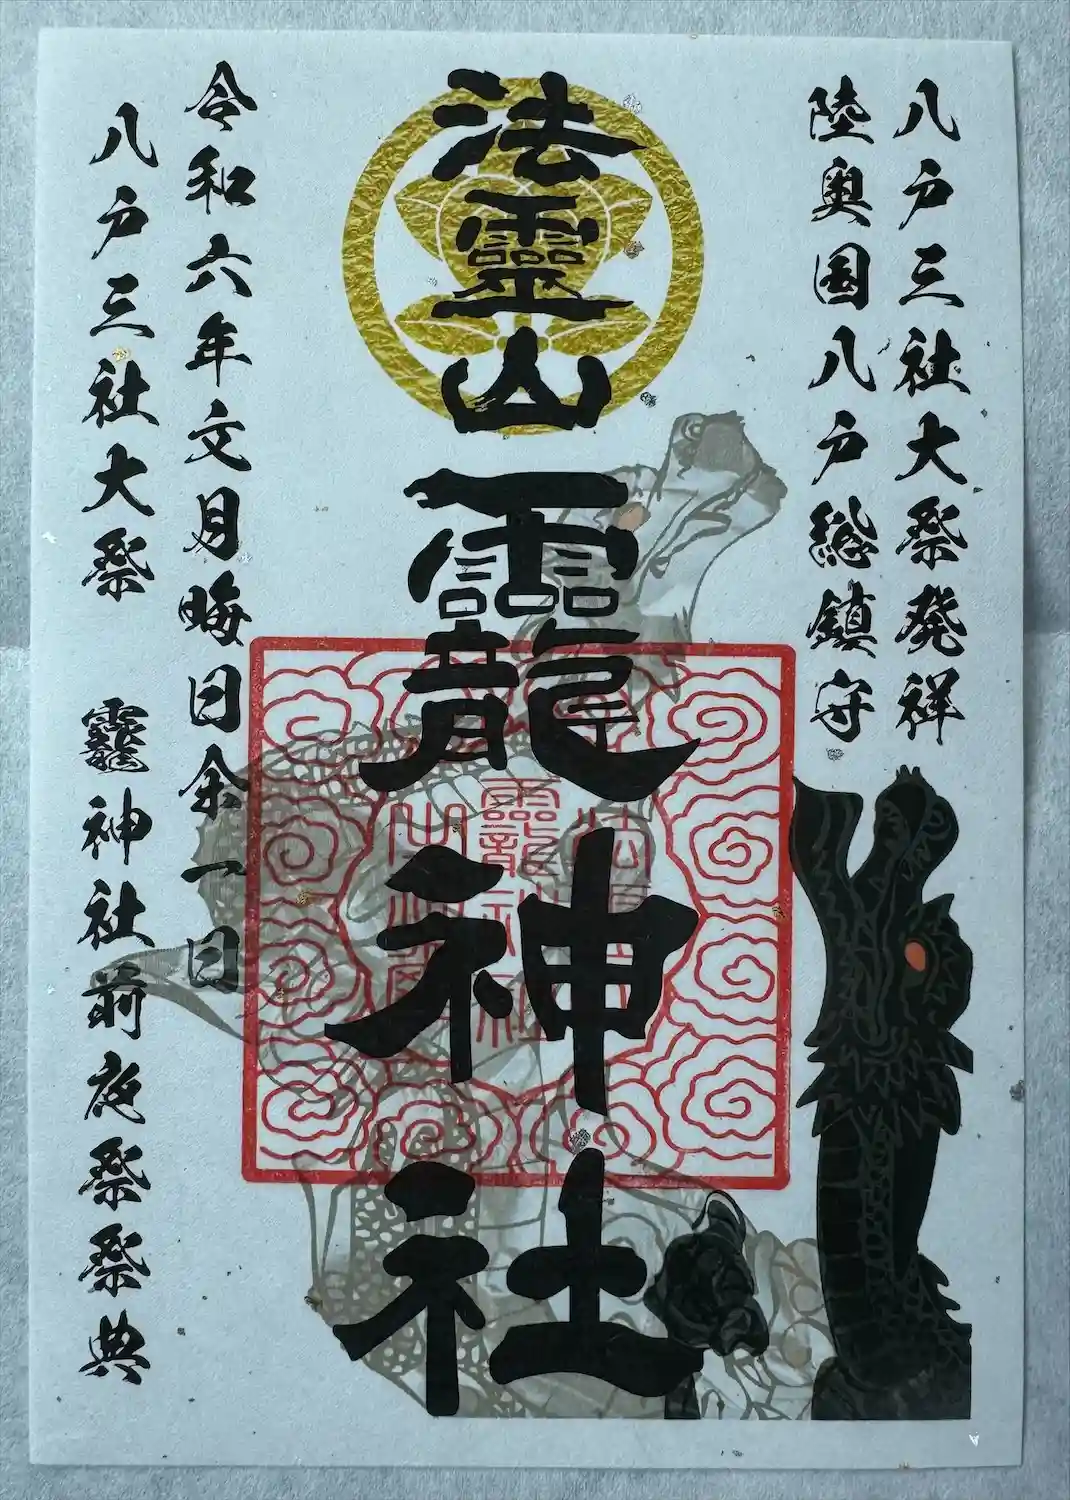 八戸三社大祭発祥
陸奥国八戸総鎮守
法靈山
龗神社
令和六年文月晦日余一日
八戸三社大祭 龗神社前夜祭祭典